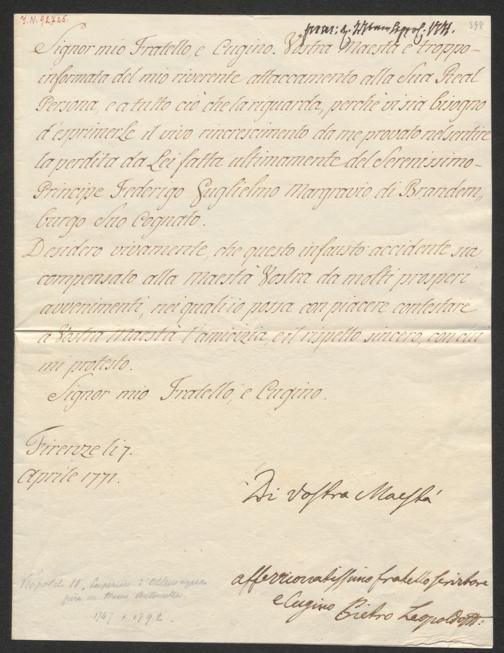 I.N. 92725
399
Signor mio Fratello e Cugino. Vostra Maestà è troppo
informata del mio riverente attaccamento alla Sua Real
Persona, e a tutto ciò che la riguarda, perchè vi sia bisogno
d'esprimerle il vivo rincrescimento da me provato nel sentire
la perdita da Lei fatta ultimamente del Serenissimo
Principe Federigo Guglielmo Margravio di Brandem,
burgo Suo Cognato.
Desidero vivamente, che questo infausto accidente sia
compensato alla Maestà Vostra da molti prosperi
avvenimenti, nei quali io possa con piacere contestare
a Vostra Maestà l'amicizia, e il rispetto sincero, con cui
mi protesto.
Signor mio Fratello, e Cugino.
Firenze li 7.
Aprile 1771.
Di Vostra Maestà
affezionatissimo fratello servitore
e Cugino Pietro Leopoldo
Léopold II. Empereur d'Allemagne
père de Marie Antoinette
1747 + 1792